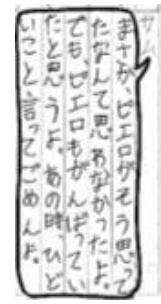 サム
まさか、ピエロがそう思って
たなんて思わなかったよ。
でも、ピエロもがんばってい
たと思うよ。あの時、ひど
いこと言ってごめんよ。